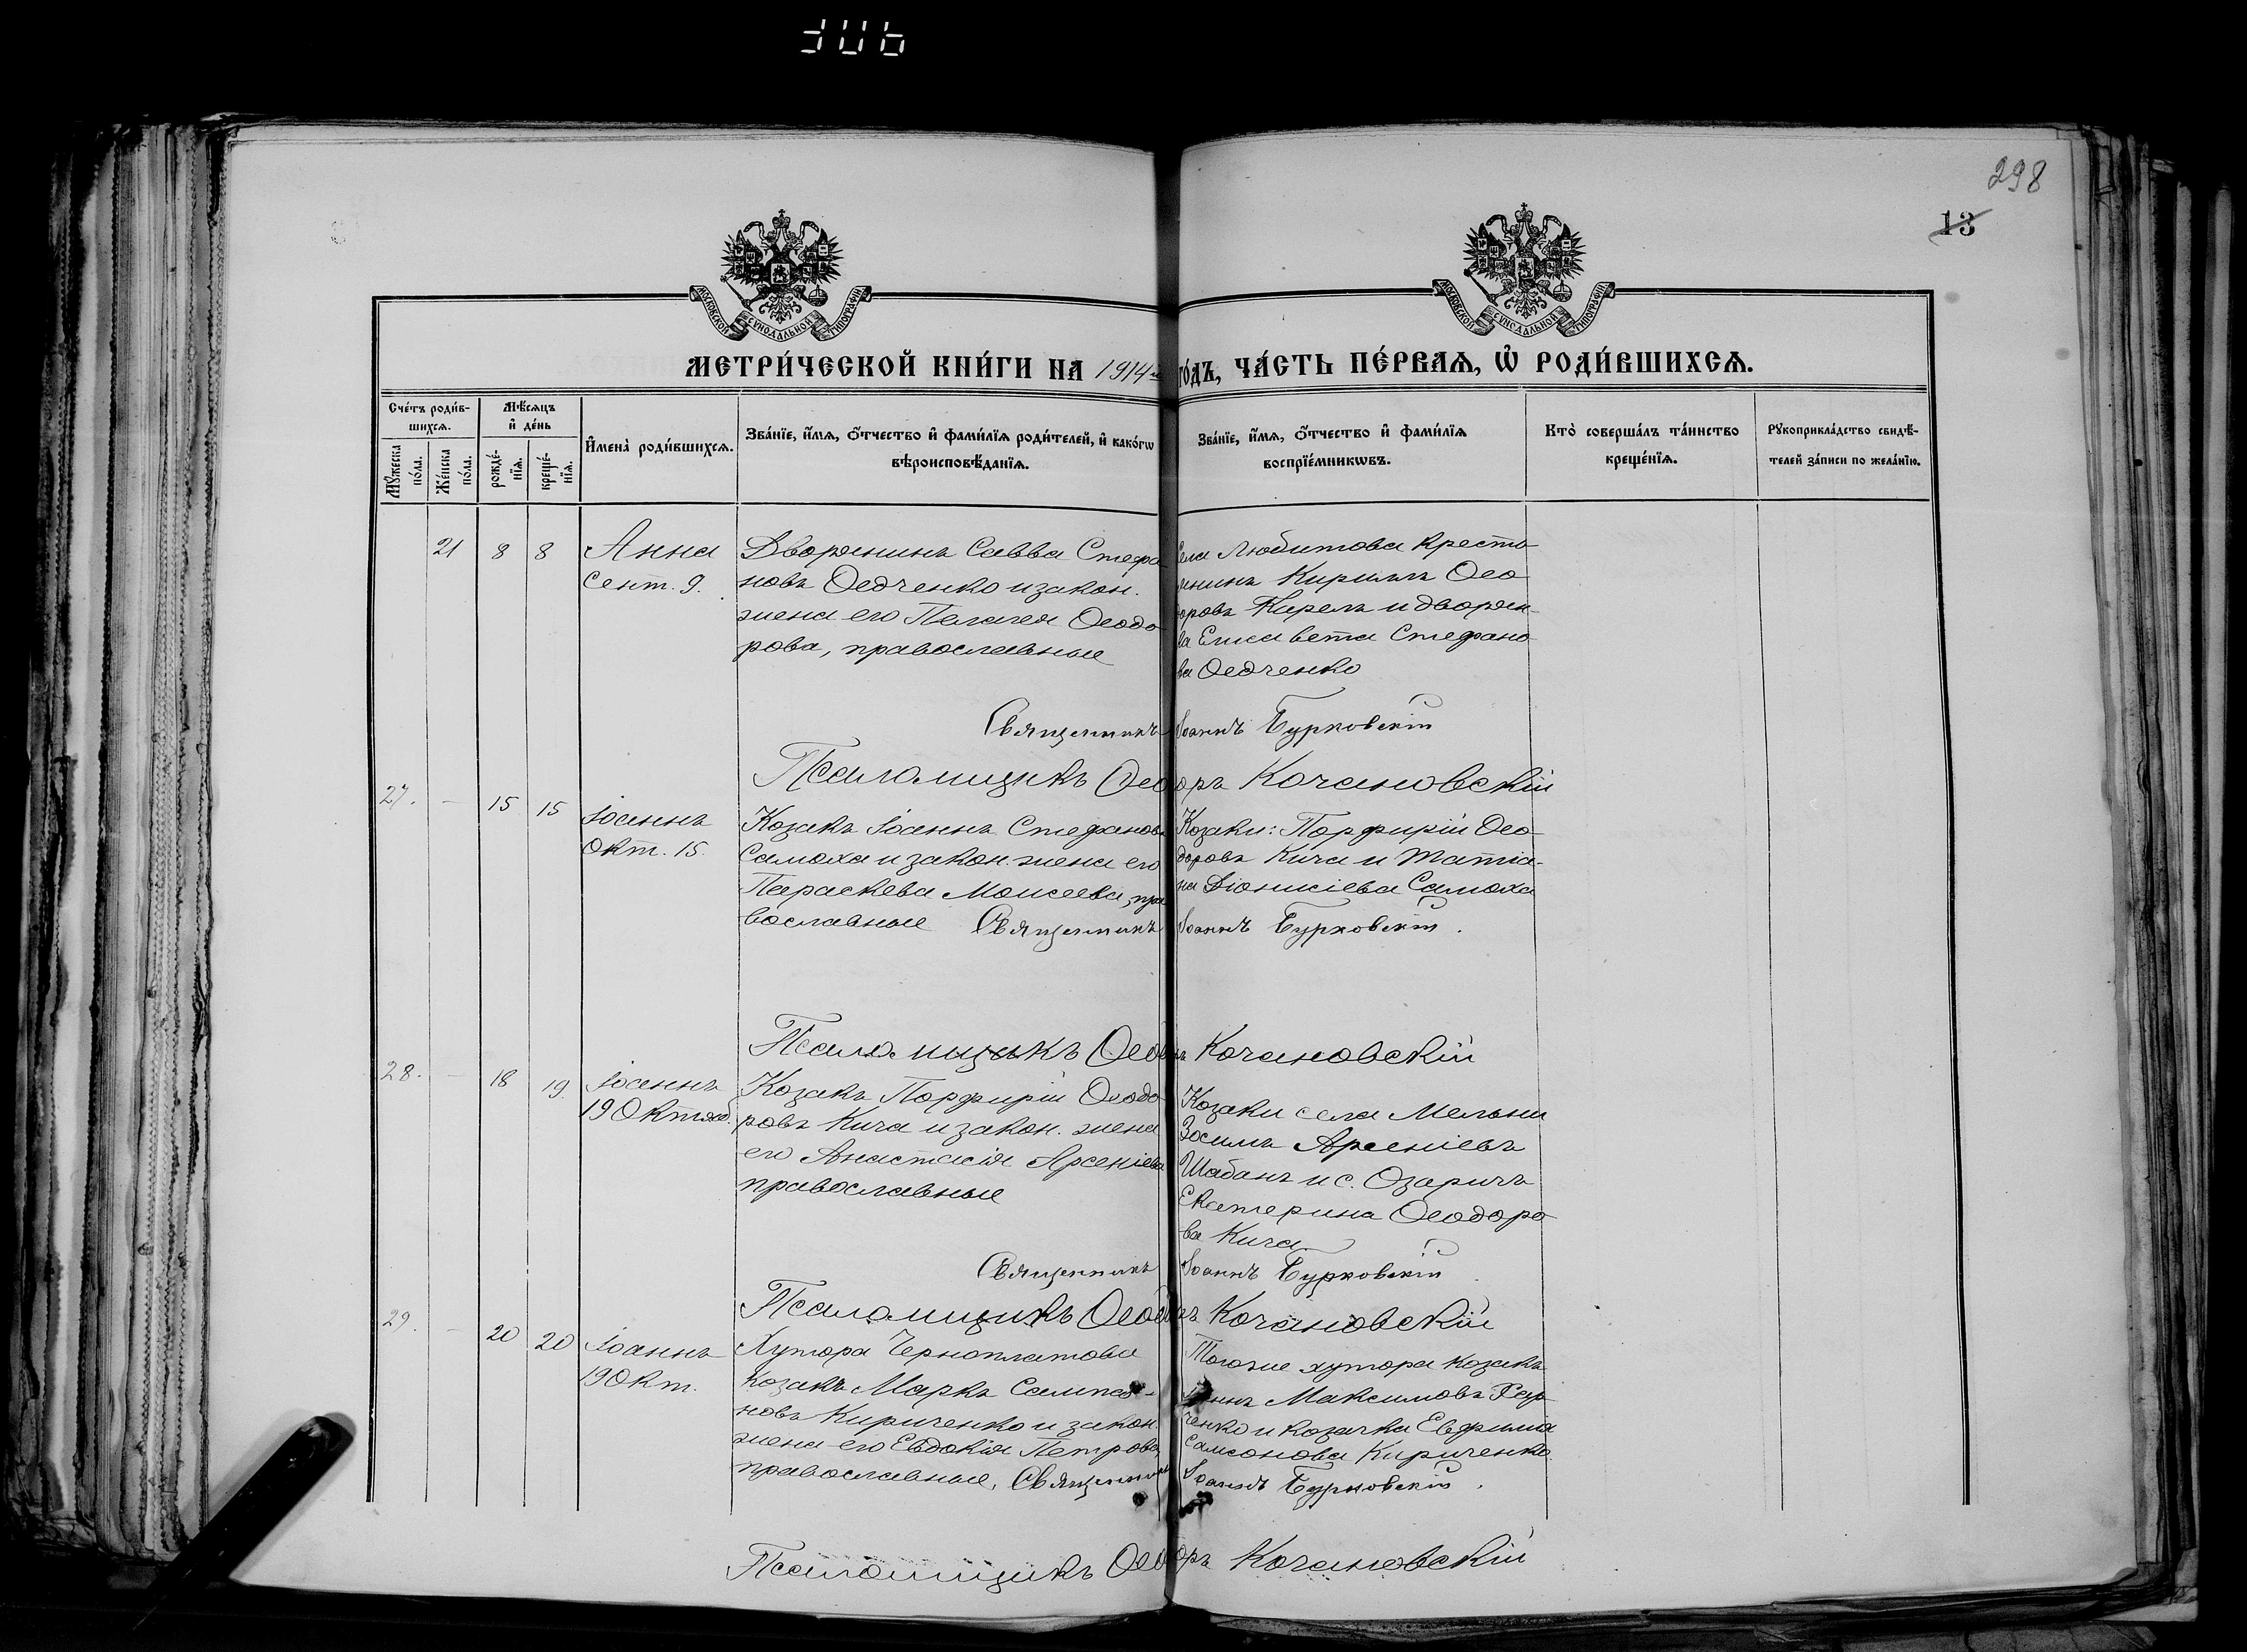 298
13
МОСКОВСКОЙ СѴНОДАЛЬНОЙ ТИПОГРАФІИ
МОСКОВСКОЙ СѴНОДАЛЬНОЙ ТИПОГРАФІИ
МЕТРИ́ЧЕСКОЙ КНИ́ГИ НА 1914 го́дъ, ЧА́СТЬ ПЕ́РВАѦ, Ѡ҆ РОДИ́ВШИХСѦ.
Сче́тъ роди́в-
шихсѧ.
Мꙋжеска по́ла.
Же́нска по́ла.
Мѣ́сѧцъ
и҆ де́нь
рожде́-
нїѧ.
креще́-
нїѧ.
И҆мена̀ роди́вшихсѧ.
Зва́нїе, и҆́мѧ, ѻ҆́тчество и҆ фами́лїѧ роди́телей, и҆ како́гѡ
вѣроисповѣ́данїѧ.
Зва́нїе, и҆́мѧ, ѻ҆́тчество и҆ фами́лїѧ
воспрїе́мникѡвъ.
Кто̀ соверша́лъ та́инство
креще́нїѧ.
Рꙋкоприкла́дство свидѣ́-
телей за́писи по жела́нїю.
21 8 8 Анна
Сент. 9.
Дворянинъ Савва Стефа
новъ Ѳедченко и закон.
жена его Пелагея Ѳеодо
рова, православные
села Любитова кресть
янинъ Кириллъ Ѳео
доровъ Карель и дворян
ка Елисавета Стефано
ва Ѳедченко
Священникъ Іоаннъ Бурковскій
Псаломщикъ Ѳеодоръ Кочановскій
27. - 15 15 Іоаннъ
Окт. 15.
Козакъ Іоаннъ Стефановъ
Самоха и закон. жена его
Параскева Моисеева, пра
вославные
Козаки: Порфирій Ѳео
доровъ Кича и Татіа-
на Діонисіева Самоха
Священникъ Іоаннъ Бурковскій.
Псаломщикъ Ѳеодоръ Кочановскій
28. - 18 19. Іоаннъ
19 Октяб.
Козакъ Порфирій Ѳеодо
ровъ Кича и закон. жена
его Анастасія Арсеніева
православные
Козаки села Мельни
Зосимъ Арсеніевъ
Шабанъ и с. Озаричъ
Екатерина Ѳеодоро
ва Кича
Священникъ Іоаннъ Бурковскій
Псаломщикъ Ѳеодоръ Кочановскій
29. - 20 20 Іоаннъ
19 Окт.
Хутора Черноплатова
козакъ Маркъ Сампсо-
новъ Кириченко и закон.
жена его Евдокія Петрова
православные.
Тогоже хутора козакъ
Максимовъ Хар
ченко и козачка Евфимія
Самсонова Кириченко.
Священникъ Іоаннъ Бурковскій.
Псаломщикъ Ѳеодоръ Кочановскій